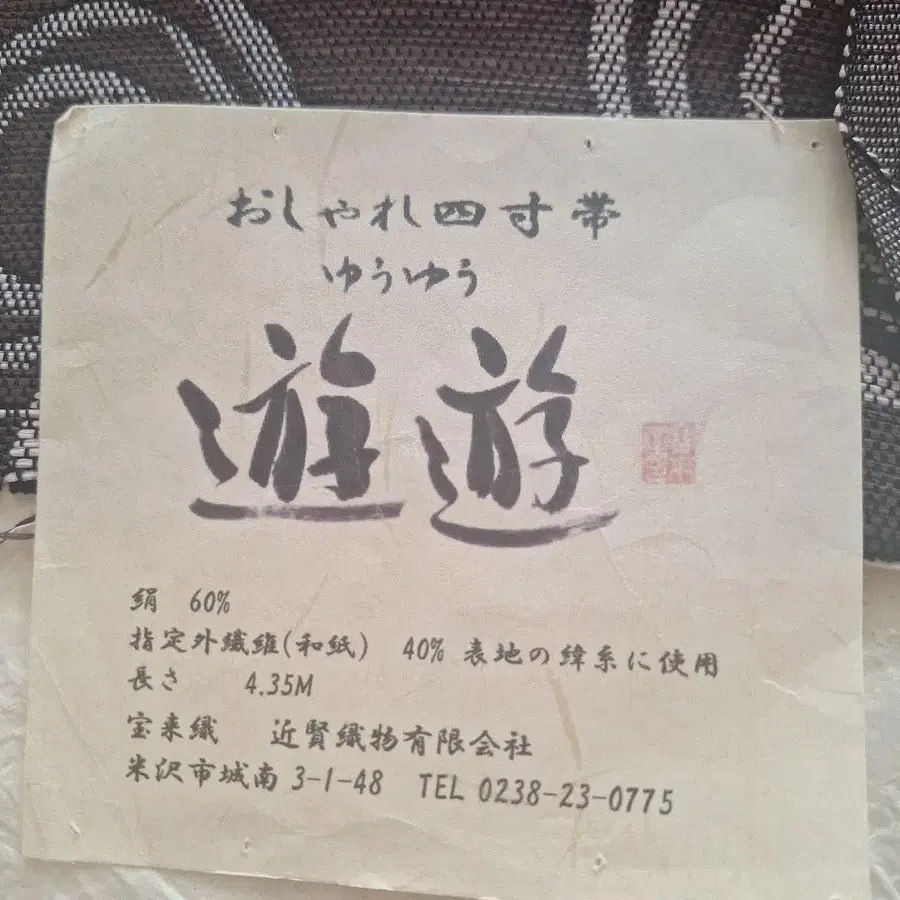 おしゃれ四寸帯
ゆうゆう
遊遊
絹 60%
指定外繊維(和紙) 40% 表地の緯糸に使用
長さ 4.35M
宝来織 近賢織物有限会社
米沢市城南 3-1-48 TEL 0238-23-0775